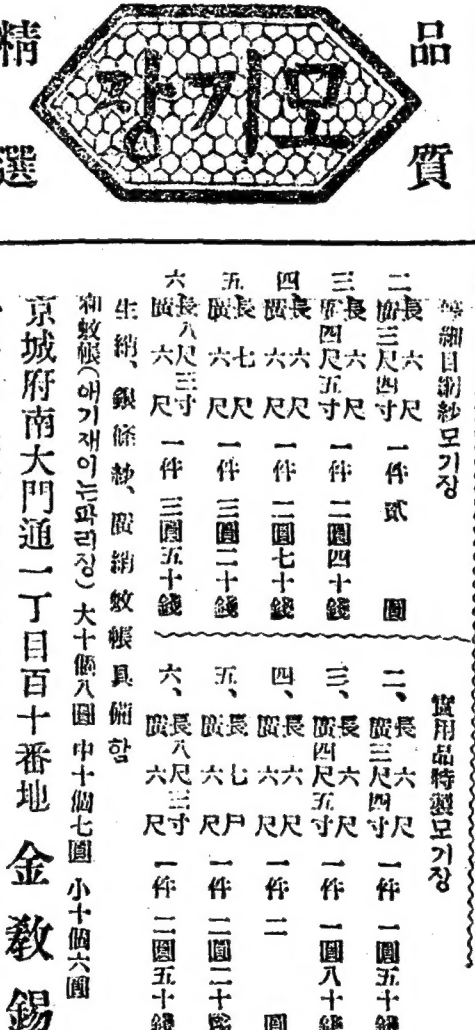 品質
모기장
精選
細目綃紗모기장
二 長六尺 廣三尺四寸 一件 貳圓
三 長六尺 廣四尺五寸 一件 二圓四十錢
四 長六尺 廣六尺 一件 二圓七十錢
五 長七尺 廣六尺 一件 三圓二十錢
六 長八尺三寸 廣六尺 一件 三圓五十錢
實用品特製모기장
二、長六尺 廣三尺四寸 一件 一圓五十錢
三、長六尺 廣四尺五寸 一件 一圓八十錢
四、長六尺 廣六尺 一件 二圓
五、長七尺 廣六尺 一件 二圓二十錢
六、長八尺三寸 廣六尺 一件 二圓五十錢
生綃、銀條紗、廣綃蚊帳具備함
蚊帳(애기재이는파리장) 大十個八圓 中十個七圓 小十個六圓
京城府南大門通一丁目百十番地 金敎錫